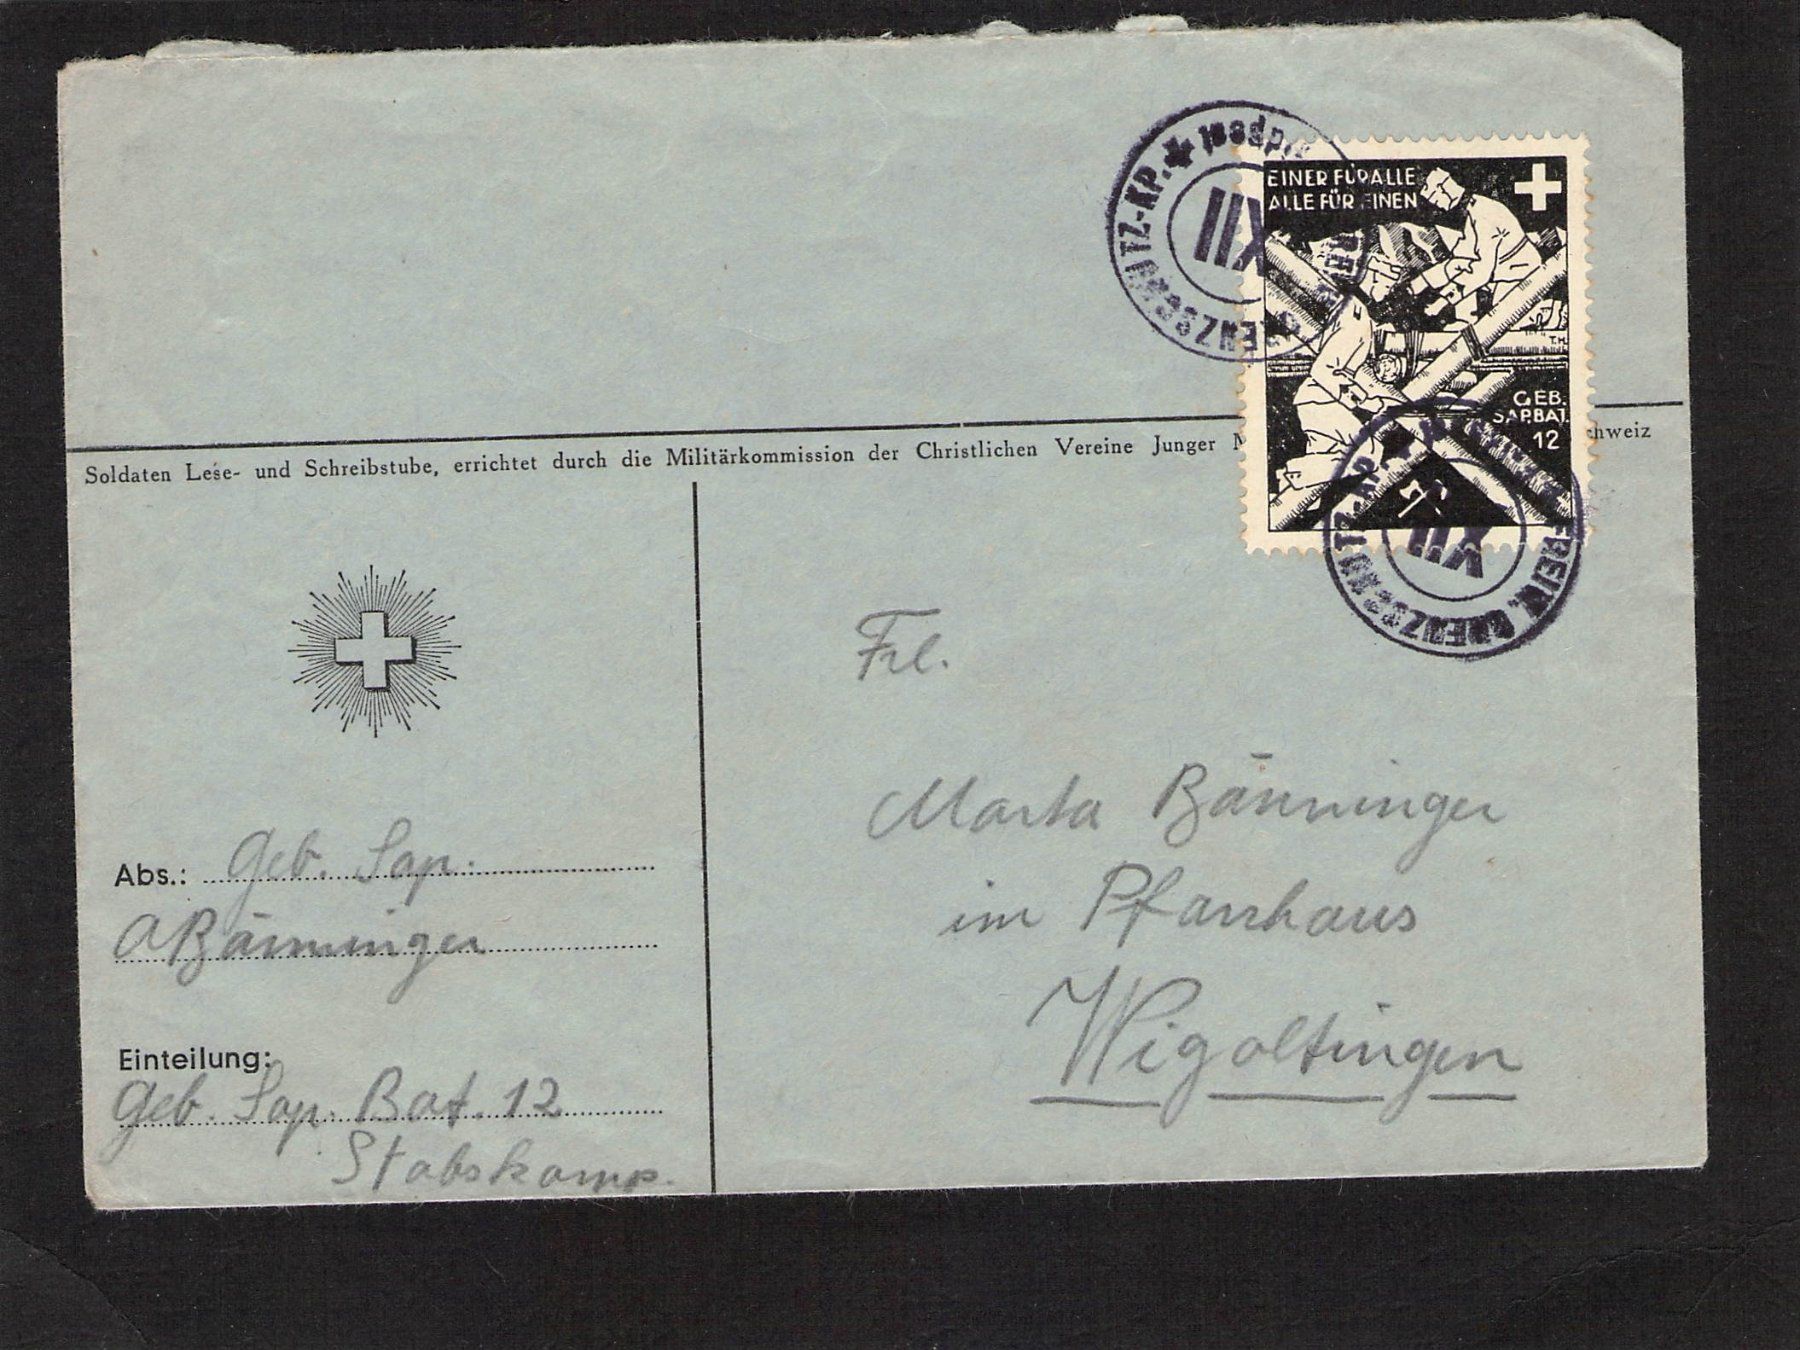 EINER FÜR ALLE
ALLE FÜR EINEN
T.H.
GEB.
SAP.BAT.
12
Feldpost
GRENZSCHUTZ-KP.
XII
FREIW. GRENZSCHUTZ-KP.
XII
Soldaten Lese- und Schreibstube, errichtet durch die Militärkommission der Christlichen Vereine Junger
Frl.
Marta Bänninger
im Pfarrhaus
Wigoltingen
Abs.: Geb. Sap.
A Bänninger
Einteilung:
Geb. Sap. Bat. 12
Stabskomp.